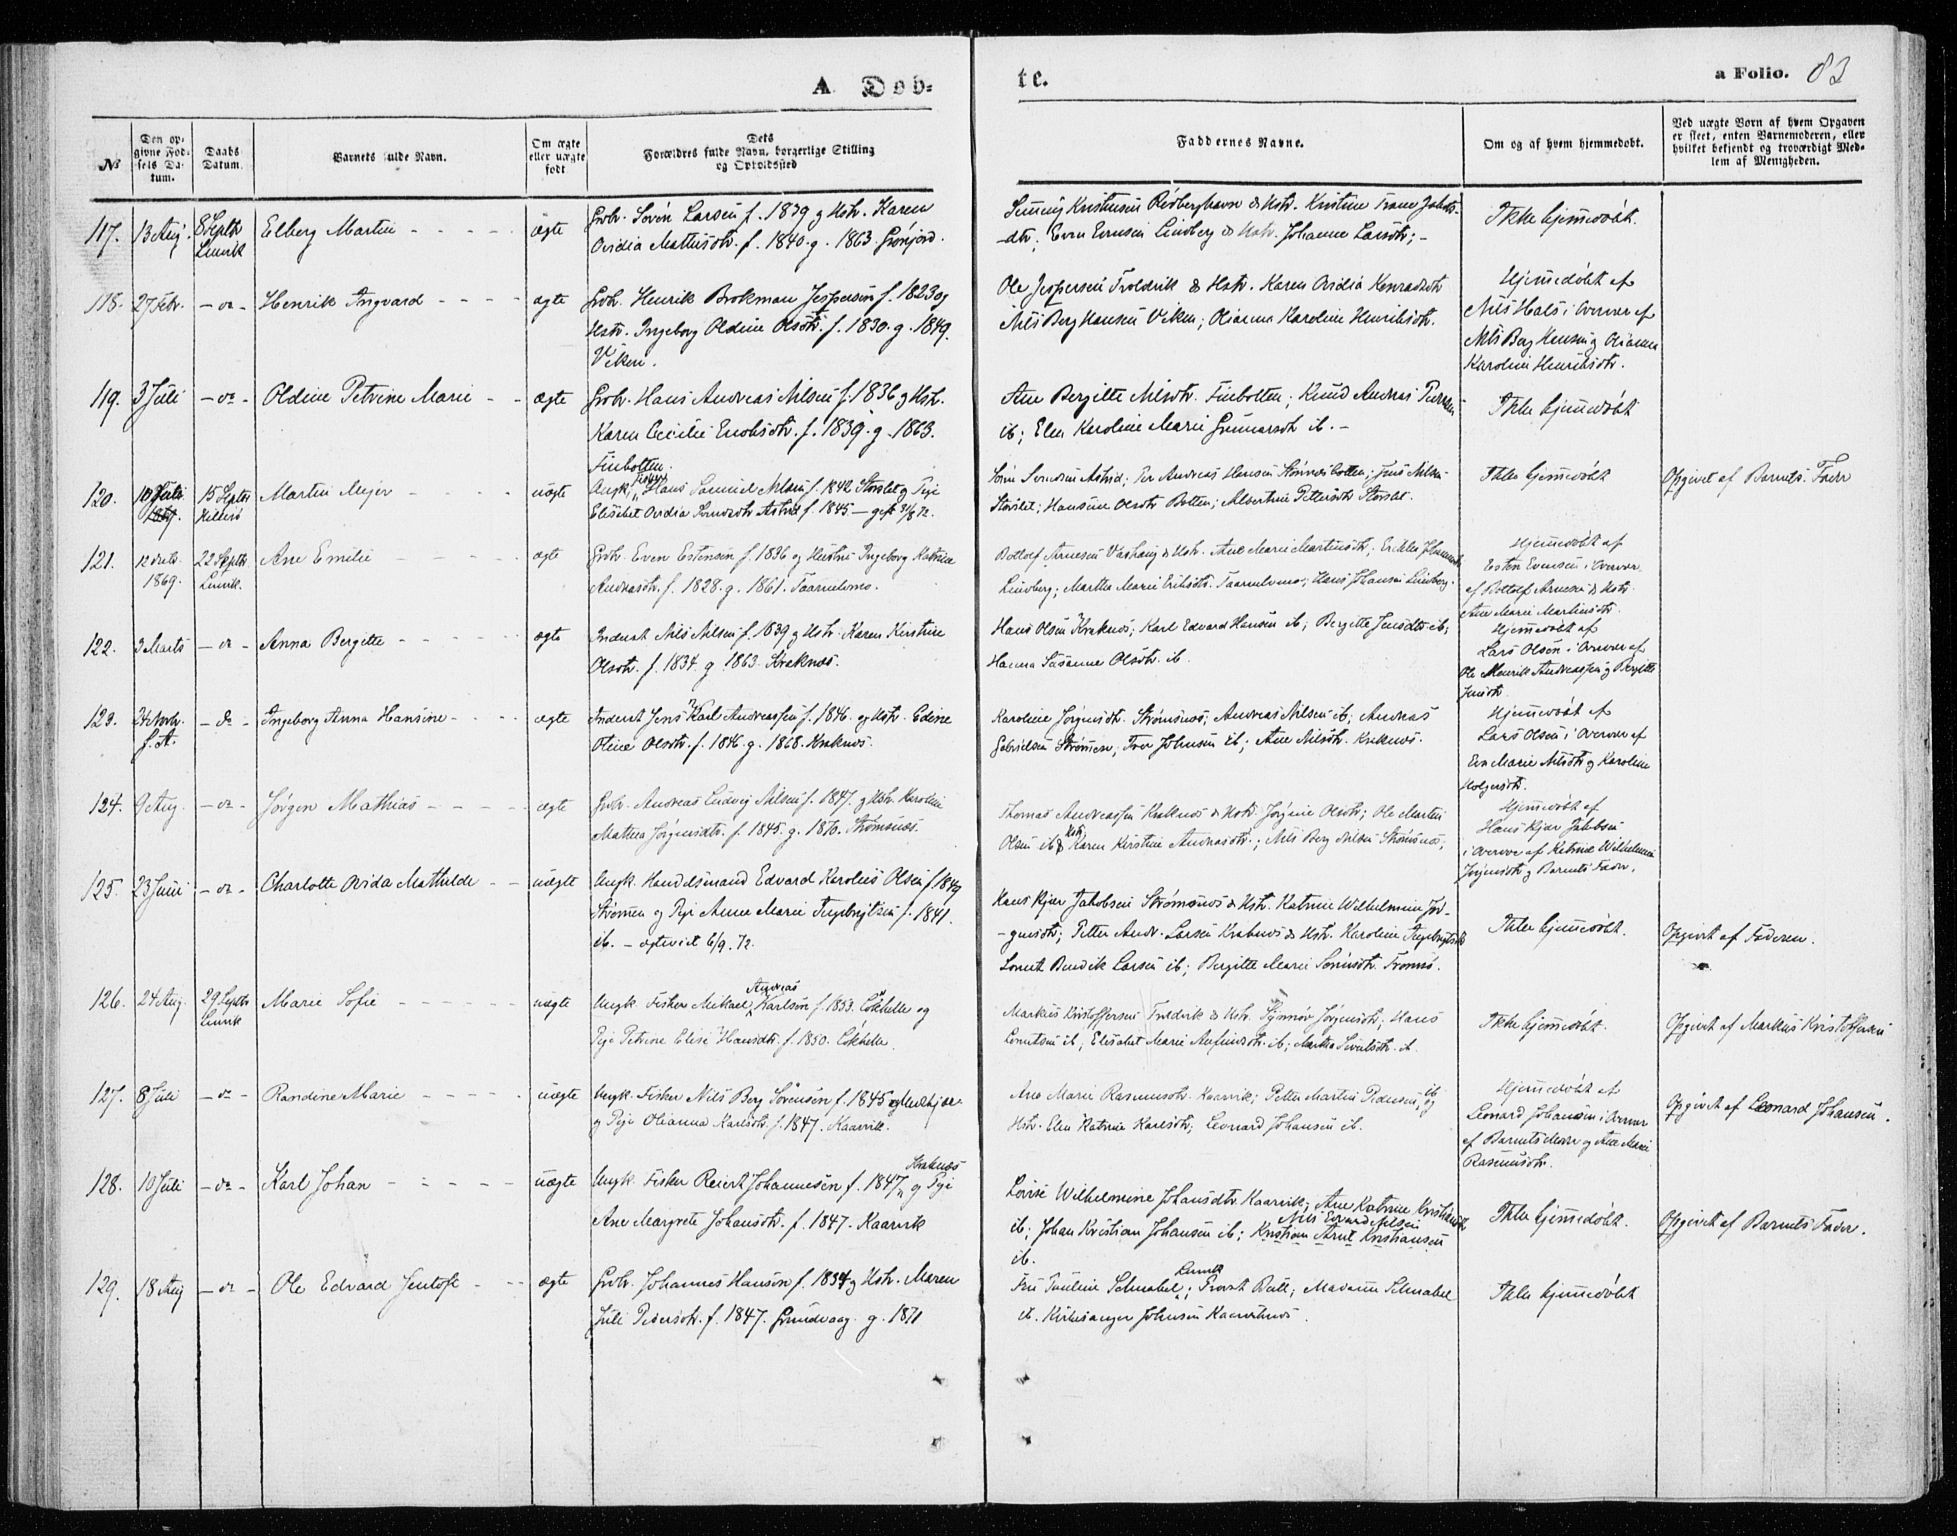 A Døb-
te.
a Folio. 83
№
Den op-
givne Fød-
sels Da-
tum.
Daabs
Datum.
Barnets fulde Navn.
Om ægte
eller uægte
født
Dets
Forældres fulde Navn, borgerlige Stilling
og Opholdssted
Faddernes Navne.
Om og af hvem hjemmedøbt.
Ved uægte Børn af hvem Opgaven
er skeet, enten Barnemoderen, eller
hvilket bekjendt og troværdigt Med-
lem af Menigheden.
117. 13 Aug. 8 Septb Elberg Martin ægte Grbr. Sören Larsen f. 1839 g Hstr. Karen
Lenvik
Ovidia Mathisdtr. f. 1840. g. 1863. Grønjord.
Hstr. Kristine
dtr; Even Evensen Lindberg & Hstr. Johanne Larsdtr; -
Ikke hjemmedøbt.
118. 27 Febr. - do - Henrik Ingvard ægte Grbr. Henrik Brokman Jespersen f. 1823 og
Hstr. Ingeborg Oldine Olsdtr. f. 1830. g. 1849.
Viken.
Ole Jespersen & Hstr. Karen Ovidia Konradsdtr
Nils Berg Hansen Viken; Olianna Karoline Henriksdtr.
Hjemmedøbt af
Nils Hals i Overvær af
Nils Berg Hansen g Olianna
Karoline Henriksdtr.
119. 3 Juli - do - Oldine Petrine Marie ægte Grbr. Hans Andreas Nilsen f. 1836 g Hstr.
Karen Cecilie Enoksdtr. f. 1839. g. 1863.
Finbotten.
Ane Bergitte Nilsdtr. Finbotten; Knud Andreas
ib; Elen Karoline Marie Gunnarsdtr ib. -
Ikke hjemmedøbt
120. 10 Juli 15 Septbr Martin Mejer uægte Ungk. Fisker Hans Samuel Nilsen f. 1842 Storslet g Pige
1867. Hillesø
Elisabet Ovidia f. 1845 - gift
Per Andreas Hansen Jens Nilsen
Storslet; Hansine Olsdtr Botten; Albertine Pettersdtr Storslet.
Ikke hjemmedøbt
Opgivet af Barnets Fader
121. 22 Septbr. Ane Emilie ægte Grbr. Even Estensen f. 1836 og Hustru Ingeborg Katrine
1869. Lenvik.
Andreasdtr. f. 1828. g. 1861.
Bottolf Arnesen & Hstr. Ane Marie Martinsdtr;
Lindberg; Marthe Marie Eriksdtr. Hans Johansen Lindberg.
Hjemmedøbt af
Esten Evensen i Overvær
af Bottolf Arnesen & Hstr.
Ane Marie Martinsdtr.
122. 3 Marts - do - Anna Bergitte ægte Inderst Nils Nilsen f. 1839 g Hstr. Karen Kirstine
Olsdtr. f. 1834. g 1863. Kraknæs.
Hans Olsen Kraknæs; Karl Edvard Hansen ib; Bergitte Jensdtr ib;
Hanna Susanne Olsdtr. ib.
Hjemmedøbt af
Lars Olsen i Overvær af
Ole Henrik Andreassen g Bergitte
Jensdtr
123. 24 Novbr. - do - Ingeborg Anna Hansine ægte Inderst Jens Karl Andreassen f. 1846. og Hstr. Edine
f. A.
Oline Olsdtr. f. 1846. g. 1868. Kraknæs.
Karoline Jørgensdtr. Strømsnæs; Andreas Nilsen ib; Andreas
Gabrielsen Iver Johnsen ib; Ane Nilsdtr. Kraknæs.
Hjemmedøbt af
Lars Olsen i Overvær af
Marie Nilsdtr g Karoline
Holgersdtr.
124. 9 Aug. - do - Jørgen Mathias ægte Grbr. Andreas Ludvig Nilsen f. 1847. g Hstr. Karoline
Mathea Jørgensdtr. f. 1845. g. 1870. Strømsnæs.
Thomas Andreassen Kraknæs & Hstr. Jörgine Olsdtr; Ole Martin
Olsen ib & Hstr. Karen Kirstine Andreasdtr.; Nils Berg Nilsen Strømsnæs;
Hjemmedøbt af
Hans Kjær Jakobsen
i Overvær af Katrine Wilhelmine
Jørgensdtr g Barnets Fader.
125. 23 Juni - do - Charlotte Ovida Mathilde uægte Ungk. Handelsmand Edvard Karolius Olsen f. 1849
Strömmen g Pige Anne Marie f. 1841.
ib. - ægteviet 6/9. 72.
Hans Kjær Jakobsen Strømsnæs & Hstr. Katrine Wilhelmine Jør-
-gensdtr; Petter Andr. Larsen Kraknæs & Hstr. Karoline
Bendik Larsen ib; Bergitte Marie Tromsø.
Ikke hjemmedøbt.
Opgivet af Faderen.
126. 24 Aug. 29 Septbr Marie Sofie uægte Ungk. Fisker Mikael Andreas Karlsen f. 1853. og
Lenvik
Pige Petrine Elise Hansdtr. f. 1850.
Markus Kristoffersen & Hstr. Jørgensdtr; Hans
ib; Elisabet Marie ib; Martha ib.
Ikke hjemmedøbt.
Opgivet af Markus Kristoffersen
127. 8 Juli - do - Randine Marie uægte Ungk. Fisker Nils Berg Sørensen f. 1845
g Pige Olianna Karlsdtr. f. 1847. Kaarvik.
Ane Marie Rasmusdtr. Kaarvik; Petter Martin Pedersen ib og
Hstr. Elen Katrine Karlsdtr; Leonard Johansen ib.
Hjemmedøbt af
Leonard Johansen i Overvær
af Barnets Moder og Ane Marie
Rasmusdtr.
Opgivet af Leonard Johansen.
128. 10 Juli - do - Karl Johan uægte Ungk. Fisker Reiert Johannesen f. 1847, Kraknæs g Pige
Ane Margrete Johansdtr. f. 1847. Kaarvik
Lovise Wilhelmine Johansdtr Kaarvik; Ane Katrine Kristiansdtr
ib; Johan Kristian Johansen ib; Nils Edvard Nilsen Kristian Arnt Kristiansen
ib.
Ikke hjemmedøbt.
Opgivet af Barnets Fader.
129. 18 Aug - do - Ole Edvard Jentoft ægte Grbr. Johannes Hansen f. 1834 g Hstr. Maren
Julie Pedersdtr. f. 1847. Grundvaag. g. 1871
Fru Pauline Schnabel; Lenvik Provst Bull; Madame Schnabel
ib. Kirkesanger Johnsen
Ikke hjemmedøbt